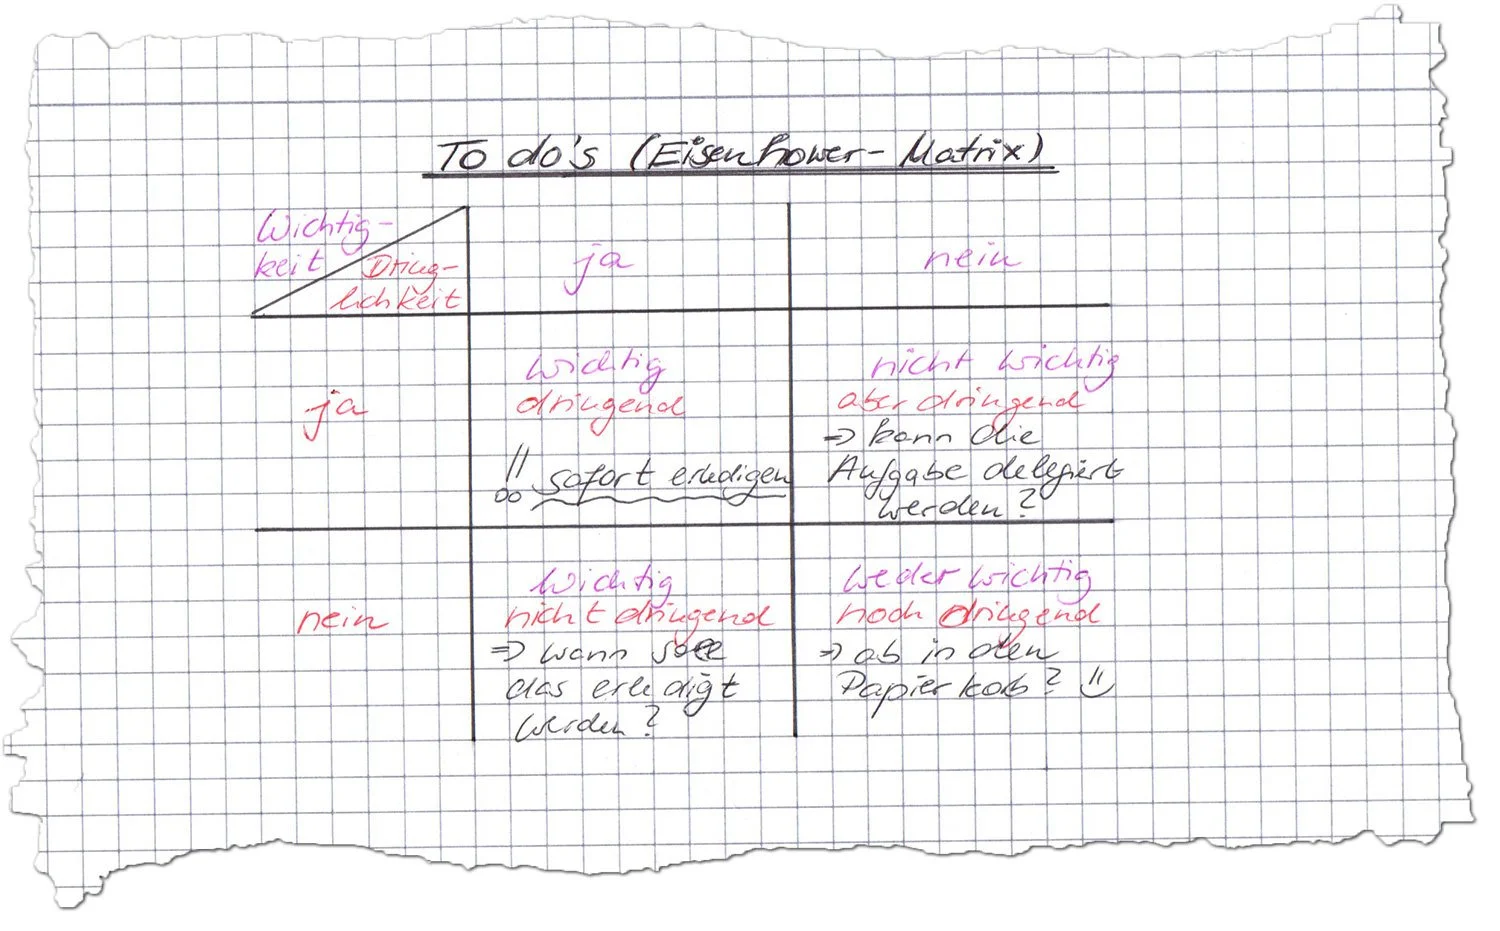 To do's (Eisenhower-Matrix)
Wichtig-
keit
Dring-
lichkeit
ja
nein
ja
wichtig
dringend
!! sofort erledigen
nicht wichtig
aber dringend
=> kann die
Aufgabe delegiert
werden?
nein
Wichtig
nicht dringend
=> wann soll
das erledigt
werden?
weder wichtig
noch dringend
=> ab in den
Papierkorb? :)